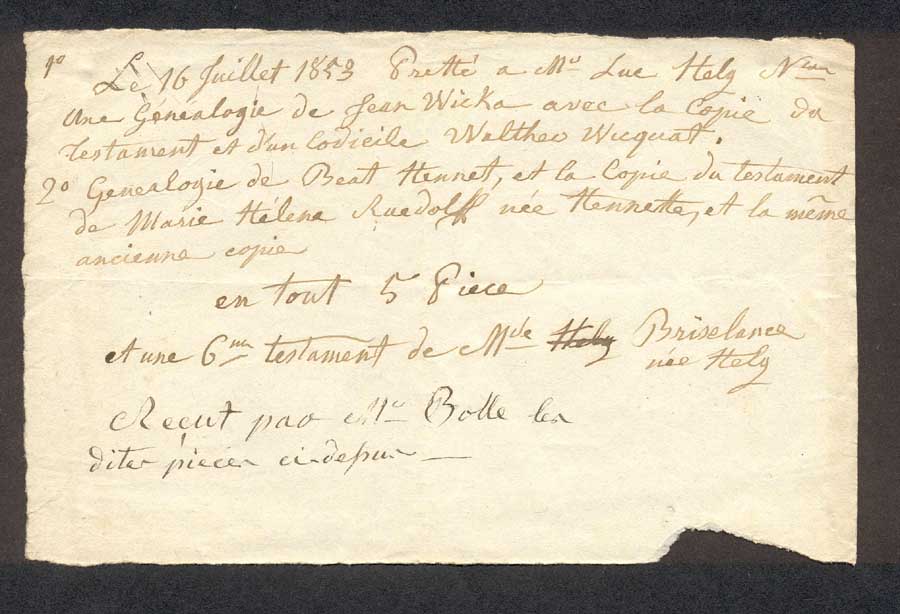 1º Le 16 Juillet 1853 Pretté a Mr Luc Hely
une Généalogie de Jean Wicka avec la Copie du
testament et d'un Codicile Walther Wuquat.
2º Genealogie de Beat Hennet, et la Copie du testament
de Marie Hélene Ruedolff née Hennette, et la même
ancienne copie
en tout 5 Piece
et une 6me testament de Mde Hely Briselance
née Hely
Recut par Mr Bolle les
dites pieces ci-dessus —